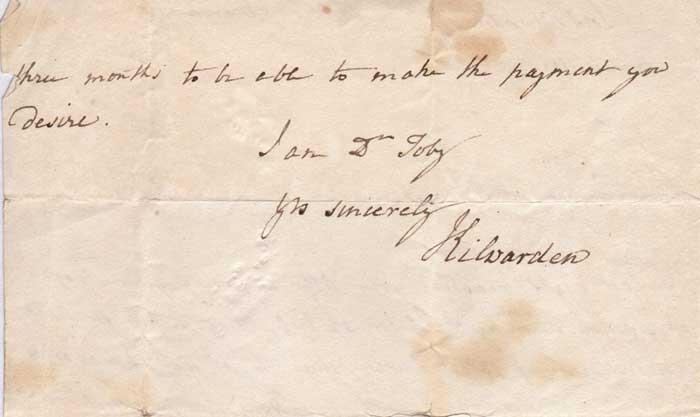 three months to be able to make the payment you
desire.
I am Dr Toby
yrs sincerely
Kilwarden